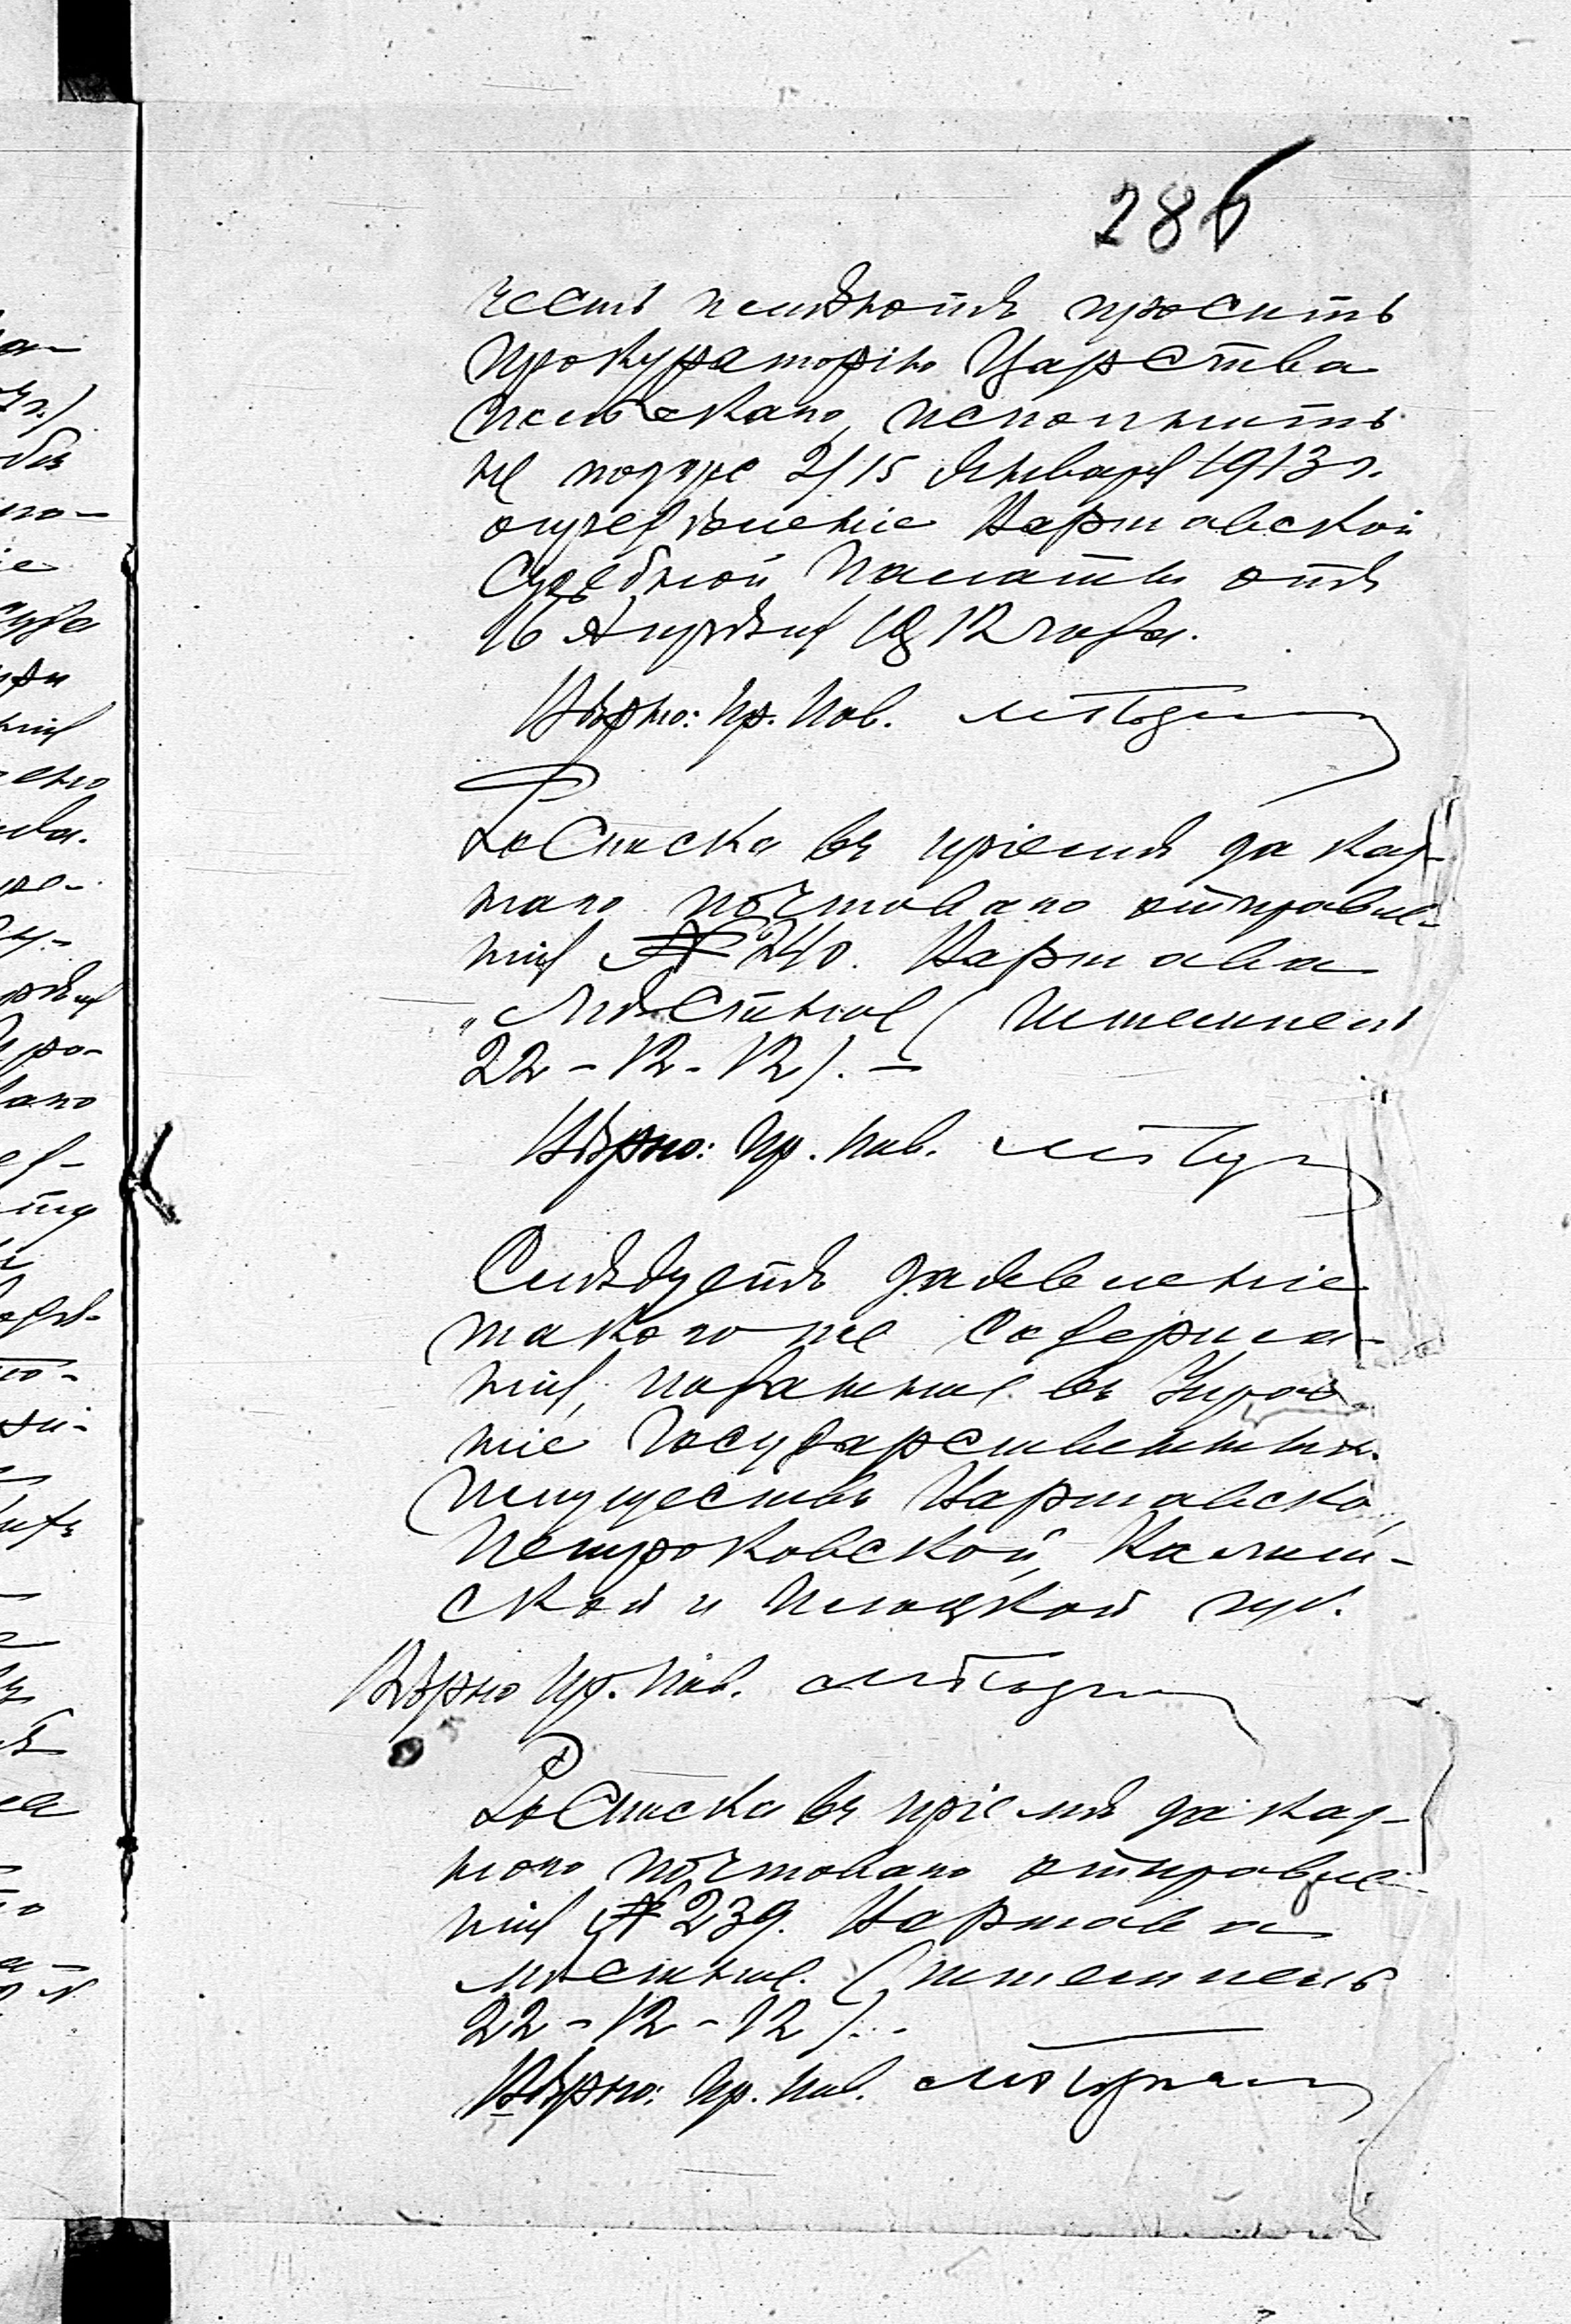 286
честь имѣютъ просить
Прокураторію Царства
Польскаго, исполнить
не позже 2/15 Января 1913 г.
опредѣленіе Варшавской
Судебной Палаты отъ
16 Апрѣля 1912 года.
Вѣрно: Пр. Пов.
Росписка въ пріемѣ заказ-
наго почтоваго отправле-
нія № 240. Варшава
„Мѣстное (Штемпель
22-12-12). —
Вѣрно: Пр. Пов.
Слѣдуетъ заявленіе
такого же содержа-
нія, поданное въ Управле-
ніе Государственныхъ
Имуществъ Варшавской,
Петроковской, Калиш-
ской и Плоцкой губ.
Вѣрно Пр. Пов.
Росписка въ пріемѣ заказ-
ного почтоваго отправле-
нія № 239. Варшава
мѣстное. (штемпель
22-12-12). -
Вѣрно: Пр. Пов.